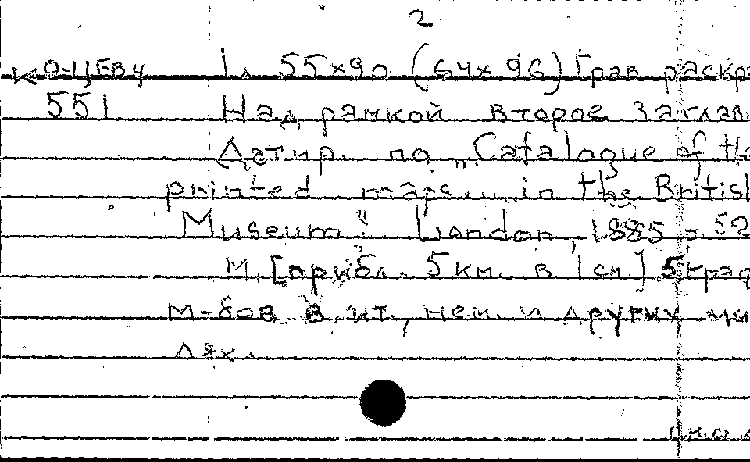 2
1 л. 55х90 (64х96) Грав. раскр
551 Над рамкой второе заглав
Датир. по „Catalogue of the
printed maps... in the British
Museum". London, 1885 с. 52
М. [прибл. 5 км. в 1 см] 5 град
м-бов в ит., нем. и других ми
лях.